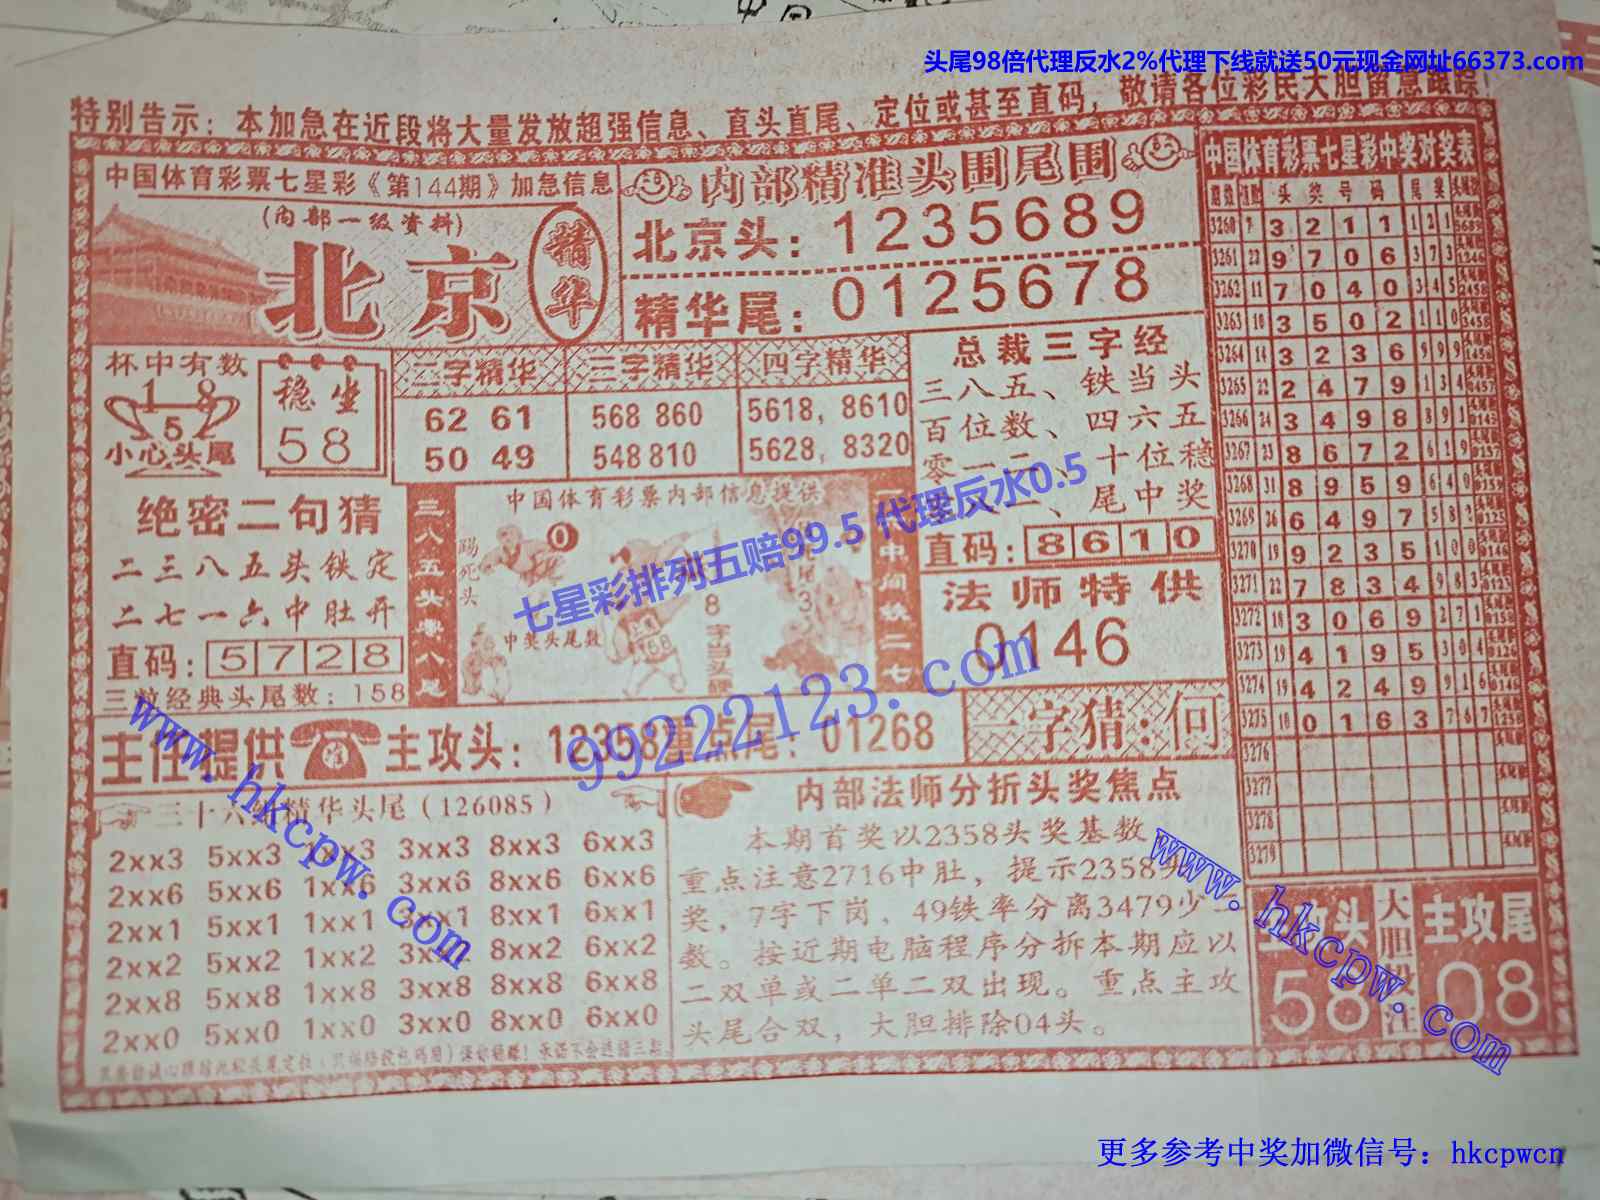 头尾98倍代理反水2%代理下线就送50元现金网址66373.com
特别告示：本加急在近段将大量发放超强信息、直头直尾、定位或甚至直码，敬请各位彩民大胆留意跟踪！
中国体育彩票七星彩《第144期》加急信息
(内部一级资料)
北京
精华
内部精准头围尾围
北京头：1235689
精华尾：0125678
杯中有数
1 8
5
小心头尾
稳坐
58
二字精华
62 61
50 49
三字精华
568 860
548 810
四字精华
5618, 8610
5628, 8320
总裁三字经
三八五、铁当头
百位数、四六五
零一二、十位稳
尾中奖
直码：8610
法师特供
0146
绝密二句猜
二三八五头铁定
二七一六中肚开
直码：5728
三粒经典头尾数：158
三八五头零八尾
中国体育彩票内部信息提供
踢死头
0
中奖头尾数
158
8字当头硬
七星彩排列五赔99.5 代理反水0.5
99222123.com
主任提供
主攻头：12358重点尾：01268
一字猜：何
三十六 精华头尾（126085）
2xx3 5xx3 1xx3 3xx3 8xx3 6xx3
2xx6 5xx6 1xx6 3xx6 8xx6 6xx6
2xx1 5xx1 1xx1 3xx1 8xx1 6xx1
2xx2 5xx2 1xx2 3xx2 8xx2 6xx2
2xx8 5xx8 1xx8 3xx8 8xx8 6xx8
2xx0 5xx0 1xx0 3xx0 8xx0 6xx0
内部法师分折头奖焦点
本期首奖以2358头奖基数
重点注意2716中肚，提示2358头
奖，7字下岗，49铁率分离3479少一
数。按近期电脑程序分拆本期应以
二双单或二单二双出现。重点主攻
头尾合双，大胆排除04头。
中国体育彩票七星彩中奖对奖表
期数 头奖号码 尾奖
3260 7 3 2 1 1 1 2 1
3261 23 9 7 0 6 3 7 3
3262 11 7 0 4 0 3 4 5
3263 10 3 5 0 2 1 1 0
3264 14 3 2 3 6 9 9 9
3265 22 2 4 7 9 1 3 4
3266 24 3 4 9 8 8 9 1
3267 23 8 6 7 2 6 1 9
3268 31 8 9 5 9 6 4 0
3269 26 6 4 9 7 5 8
3270 19 9 2 3 5 1 0 0
3271 22 7 8 3 4 9 8 3
3272 18 3 0 6 9 2 7 1
3273 19 4 1 9 5 3 0 4
3274 19 4 2 4 9 9 1 6
3275 10 0 1 6 3 7 6 7
3276
3277
3278
3279
主攻头
58
大胆投注
主攻尾
08
www.hkcpw.com
www.hkcpw.com
更多参考中奖加微信号：hkcpwcn